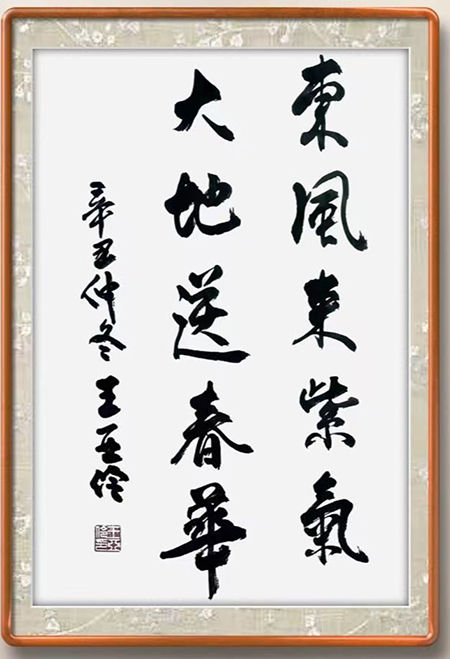 東風来紫氣
大地送春華
辛丑仲冬 王亚